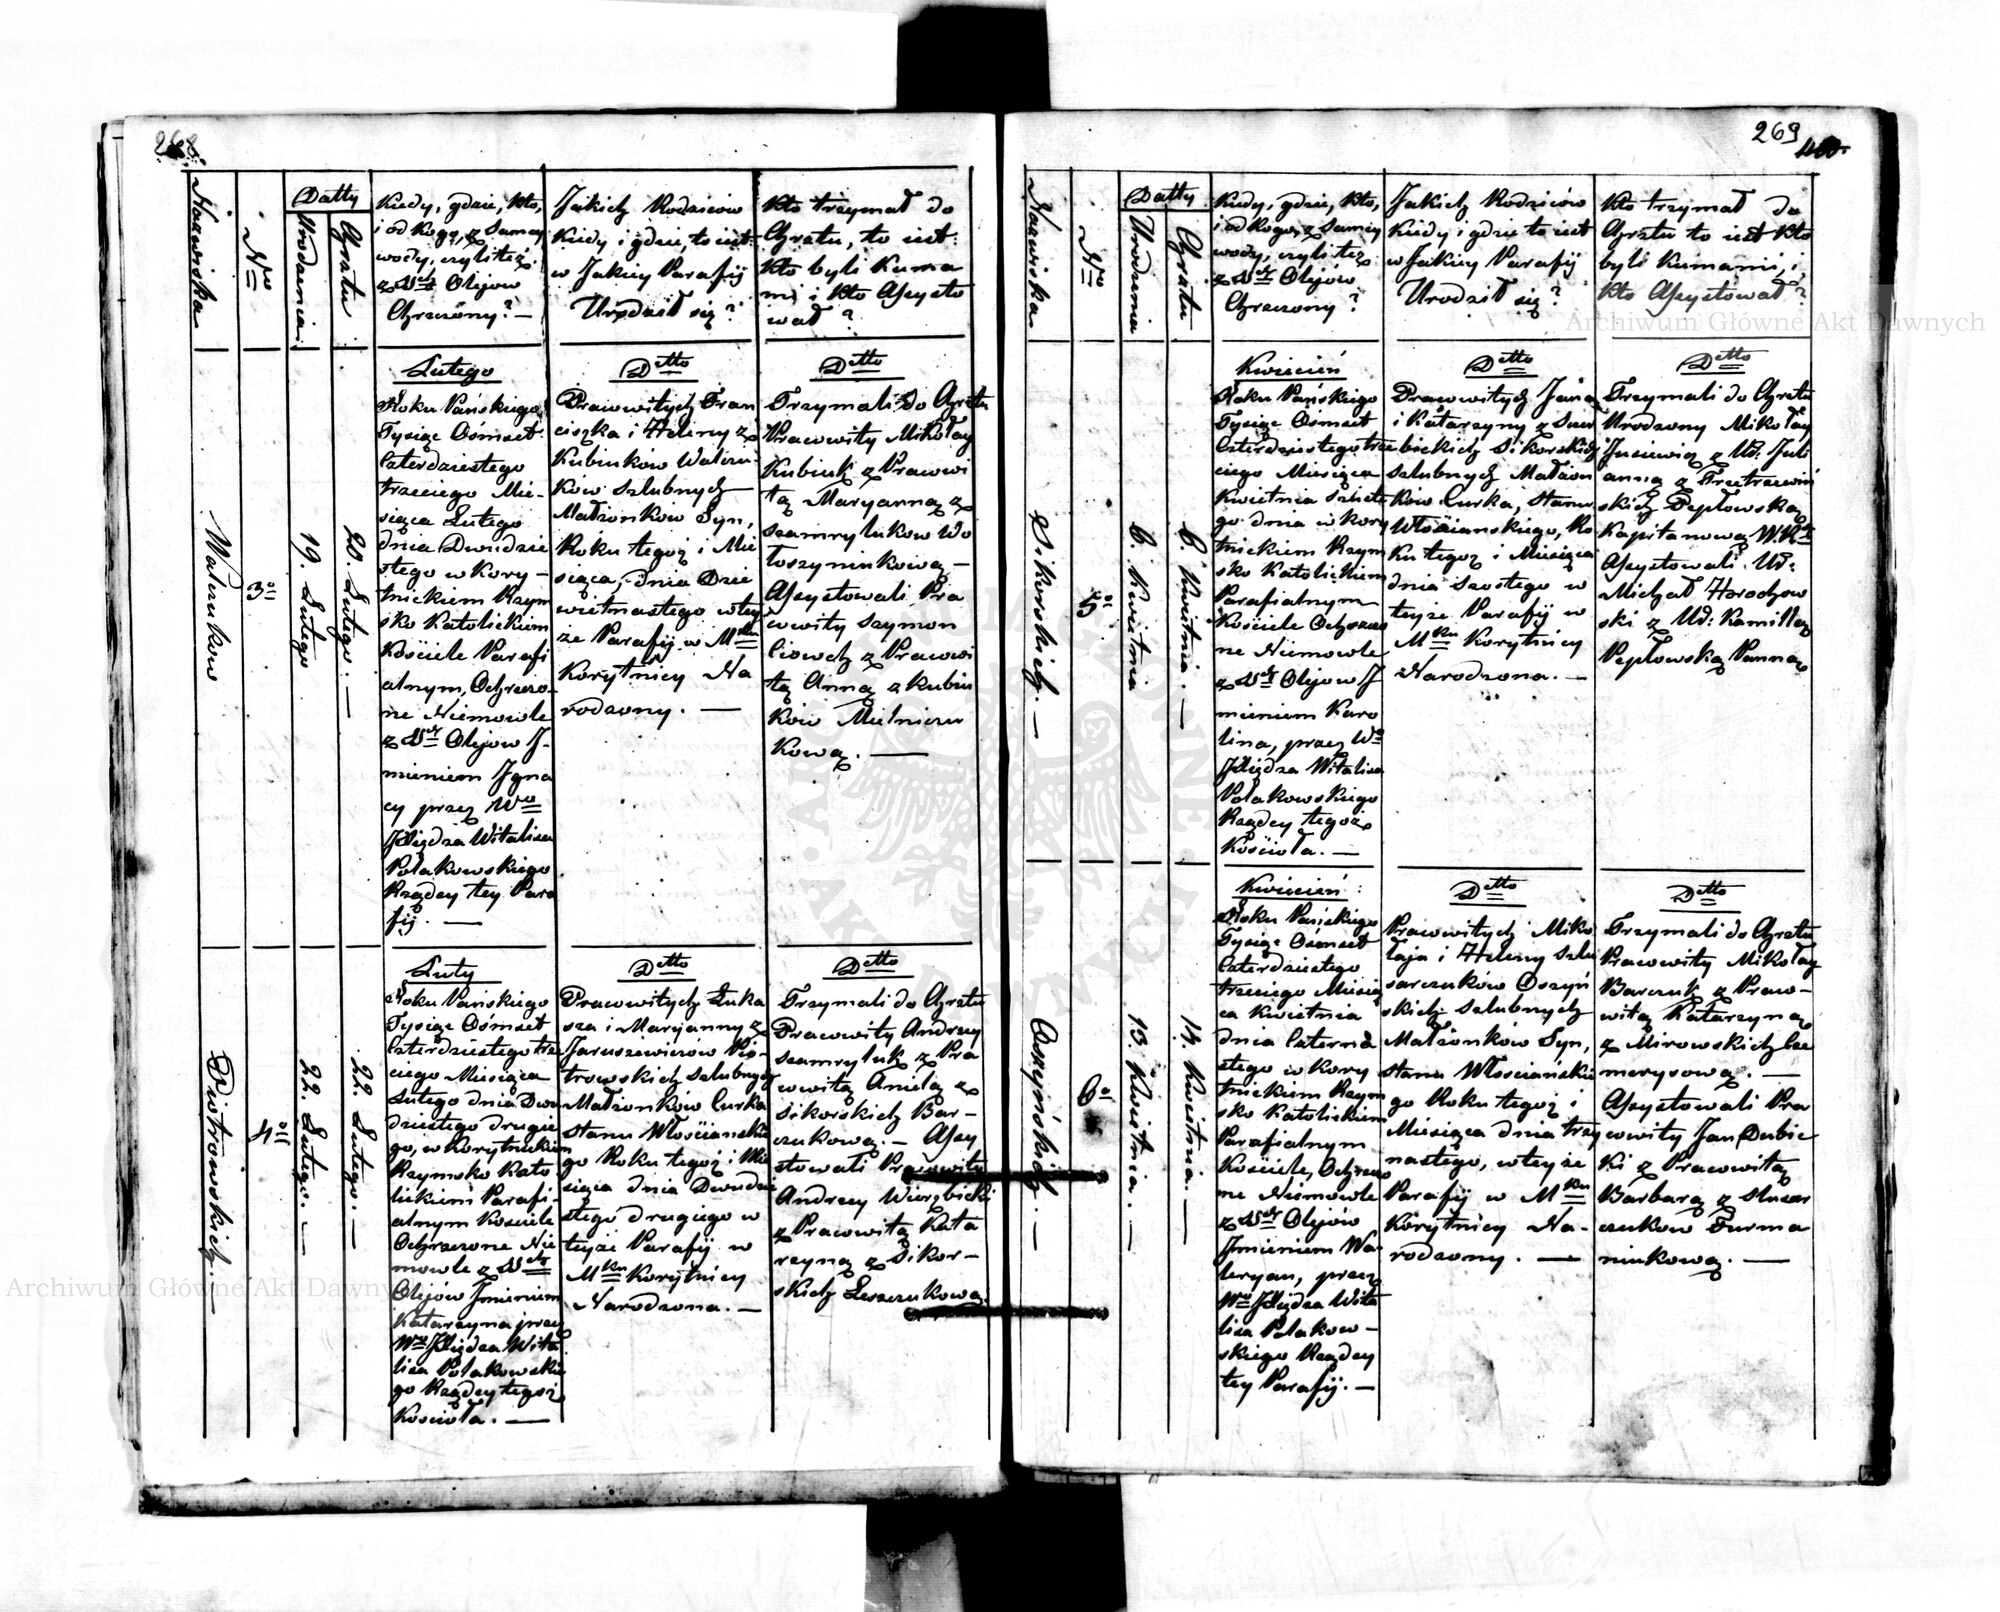 268.
Nazwiska
No
Datty
Urodzenia
Chrztu
Kiedy, gdzie, kto,
i od kogo, z samey
wody, czyli też
z Stch Olejow
Chrzczony? —
Jakich Rodziców
Kiedy i gdzie, to iest
w Jakiey Parafij
Urodził się?
Kto trzymał do
Chrztu, to iest:
kto byli Kuma
mi i kto Assysto
wał?
Walczukow
3o
19. Lutego
20. Lutego. —
Lutego
Roku Pańskiego
Tysiąc Ośmset
Czterdziestego
trzeciego Mie-
siąca Lutego
dnia Dwudzie
stego w Kory-
tnickiem Rzym
sko Katolickiem
Kościele Parafi
alnym, Ochrzczo-
ne Niemowle
z Stch Olejow J-
mieniem Jgna
cy przez Wgo
JXiędza Witalisa
Polakowskiego
Rządcy tey Para
fij. —
Dtto
Pracowitych Fran
ciszka i Heleny z
Kubiuków Walczu-
ków szlubnych
Małżonków Syn,
Roku tegoż i Mie
siąca, dnia Dzie
wietnastego w tey
że Parafij w Mku
Korytnicy Na
rodzony. —
Dtto
Trzymali do Chrztu
Pracowity Mikołay
Kubiuk z Pracowi
tą Maryanną z
Szamrylukow Wo
łoszyniukową —
Assystowali Pra
cowity Szymon
Liowch z Pracowi
tą Anną z Kubiu
ków Mielniczu
kową. —
Piotrowskich. —
4o
22. Lutego. —
22. Lutego. —
Luty
Roku Pańskiego
Tysiąc Ośmset
Czterdziestego trze
ciego Miesiąca
Lutego dnia Dwu
dziestego drugie
go, w Korytnickiem
Rzymsko Kato
lickiem Parafi-
alnym Kościele
Ochrzczone Nie
mowle z Stch
Olejów Jmieniem
Katarzyna przez
Wgo JXiędza Wita
lisa Polakowskie
go Rządcy tegoż
Kościoła. —
Dtto
Pracowitych Łuka
sza i Maryanny z
Jaruszewiczów Pio-
trowskich szlubnych
Małżonków Curka
stanu Włościańskie
go Roku tegoż i Mie
siąca dnia Dwudzie
stego drugiego w
teyże Parafij w
Mku Korytnicy
Narodzona. —
Dtto
Trzymali do Chrztu
Pracowity Andrzey
Szamryluk z Pra
cowitą Anielą z
Sikorskich Bar-
czukową. — Assy
stowali Pracowity
Andrzey Wierzbicki
z Pracowitą Kata
rzyną z Sikor-
skich Leszczukową.
269
Nazwiska
No
Datty
Urodzenia
Chrztu
Kiedy, gdzie, kto,
i od kogo, z samey
wody, czyli też
z Stch Olejów
Chrzczony?
Jakich Rodziców
Kiedy i gdzie to iest
w Jakiey Parafij
Urodził się?
Kto trzymał do
Chrztu to iest kto
byli Kumami, i
kto Assystował?
Sikorskich. —
5o
6. Kwietnia
6. Kwietnia. —
Kwiecień
Roku Pańskiego
Tysiąc Ośmset
Czterdziestego trze
ciego Miesiąca
Kwietnia szoste
go dnia w Kory
tnickiem Rzym
sko Katolickiem
Parafialnym
Kościele Ochrzczo
ne Niemowle
z Stch Olejow J
mieniem Karo
lina, przez Wgo
JXiędza Witalisa
Polakowskiego
Rządcy tegoż
Kościoła. —
Dtto
Pracowitych Jana
i Katarzyny z Szer
bickich Sikorskich
szlubnych Małżon
ków Curka, stanu
Włościanskiego, Ro
ku tegoż i Miesiąca
dnia szostego w
teyże Parafij w
Mku Korytnicy
Narodzona. —
Dtto
Trzymali do Chrztu
Urodzony Mikołay
Jusiewicz z Ur: Juli
anną z Trzetrzewiń
skich Pepłowską
Kapitanową W. Rch
Assystowali Ur:
Michał Horochow
ski z Ur: Kamillą
Pepłowską Panną
Oszyńskich. —
6o
13. Kwietnia. —
14. Kwietnia. —
Kwiecień:
Roku Pańskiego
Tysiąc Ośmset
Czterdziestego
trzeciego Miesią
ca Kwietnia
dnia Czterna
stego w Kory
tnickiem Rzym
sko Katolickiem
Parafialnym
Kościele, Ochrzczo
ne Niemowle
z Stch Olejów
Jmieniem Wa-
leryan, przez
Wgo JXiędza Wita
lisa Polakow-
skiego Rządcy
tey Parafij. —
Dtto
Pracowitych Miko
łaja i Heleny Szlu
sarczuków Oszyń
skich szlubnych
Małżonków Syn,
stanu Włościańskie
go Roku tegoż i
Miesiąca dnia trzy
nastego, w teyże
Parafij w Mku
Korytnicy Na-
rodzony. —
Dtto
Trzymali do Chrztu
Pracowity Mikołay
Barczuk z Praco-
witą Katarzyną
z Mirowskich Cze
merysową. —
Assystowali Pra
cowity Jan Dubic
ki z Pracowitą
Barbarą z Slusar
czukow Furma
niukową. —
Archiwum Główne Akt Dawnych
Archiwum Główne Akt Dawnych